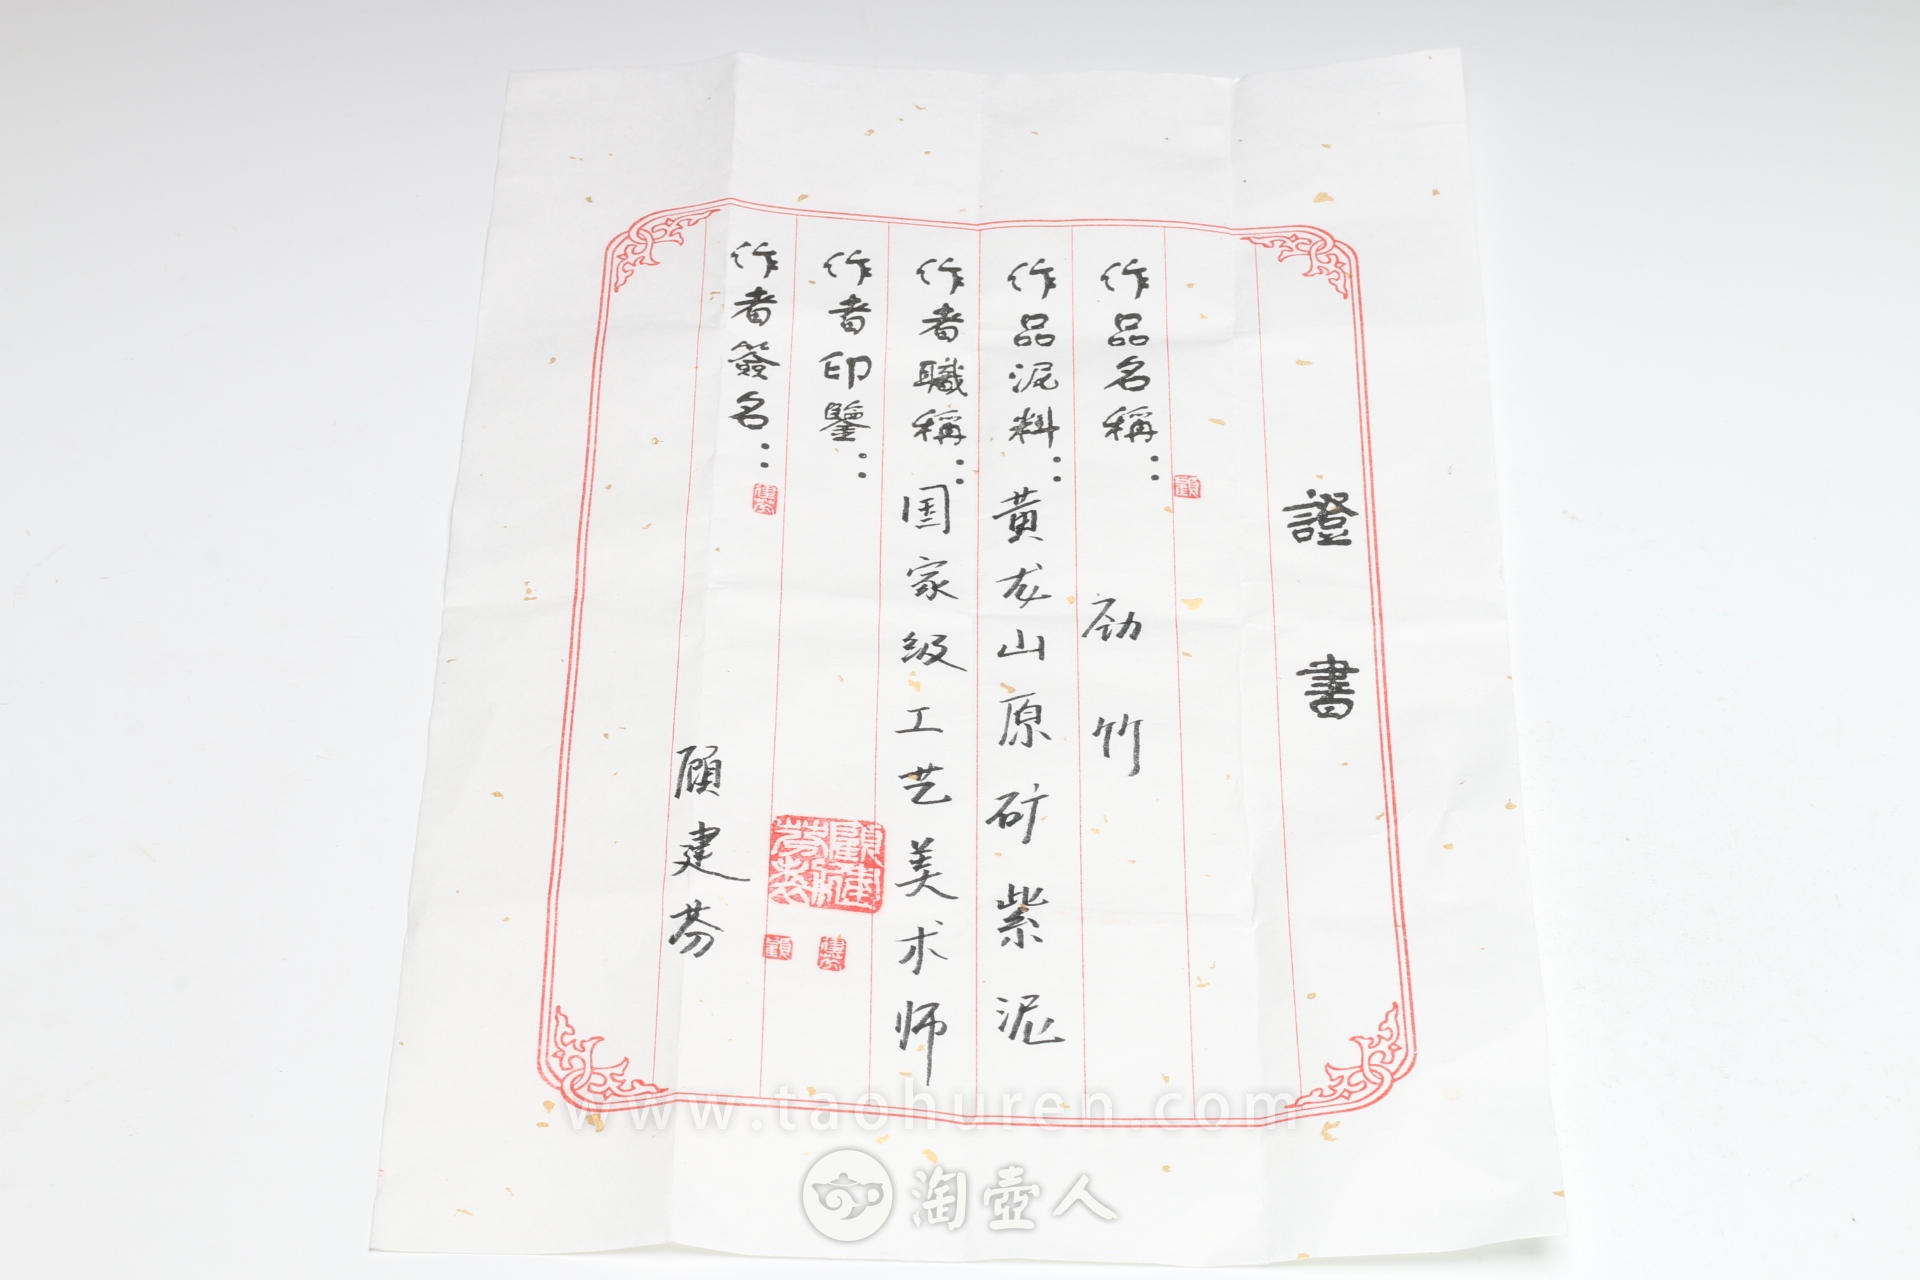 證書
作品名稱：劲竹
作品泥料：黄龙山原矿紫泥
作者職稱：国家级工艺美术师
作者印鑒：
作者簽名：顾建芬
顧
建芬
顧建芬製
顧
建芬
www.taohuren.com
淘壶人